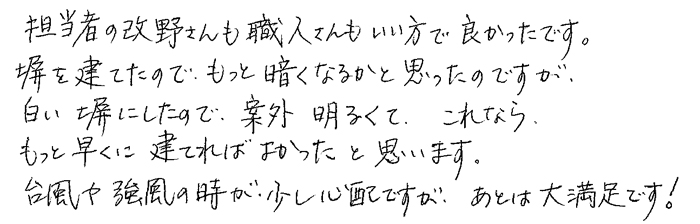 担当者の改野さんも職人さんもいい方で良かったです。
塀を建てたので、もっと暗くなるかと思ったのですが、
白い塀にしたので、案外明るくて、これなら、
もっと早くに建てればよかったと思います。
台風や強風の時が、少し心配ですが、あとは大満足です!